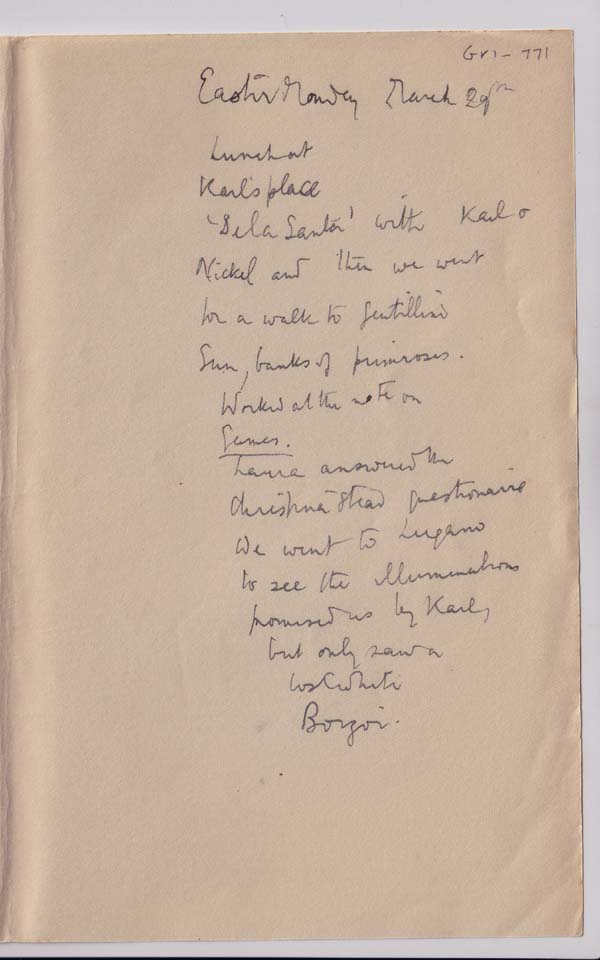 Gr1 - 771
Easter Monday March 29th
Lunch at
Karl's place
'Dela Santa' with Karl &
Nickel and then we went
for a walk to Gentillino
Sun, banks of primroses.
Worked at the note on
James.
Laura answered the
Christina Stead questionaire
We went to Lugano
to see the illuminations
promised us by Karl,
but only saw a
lost white
Borzoi.